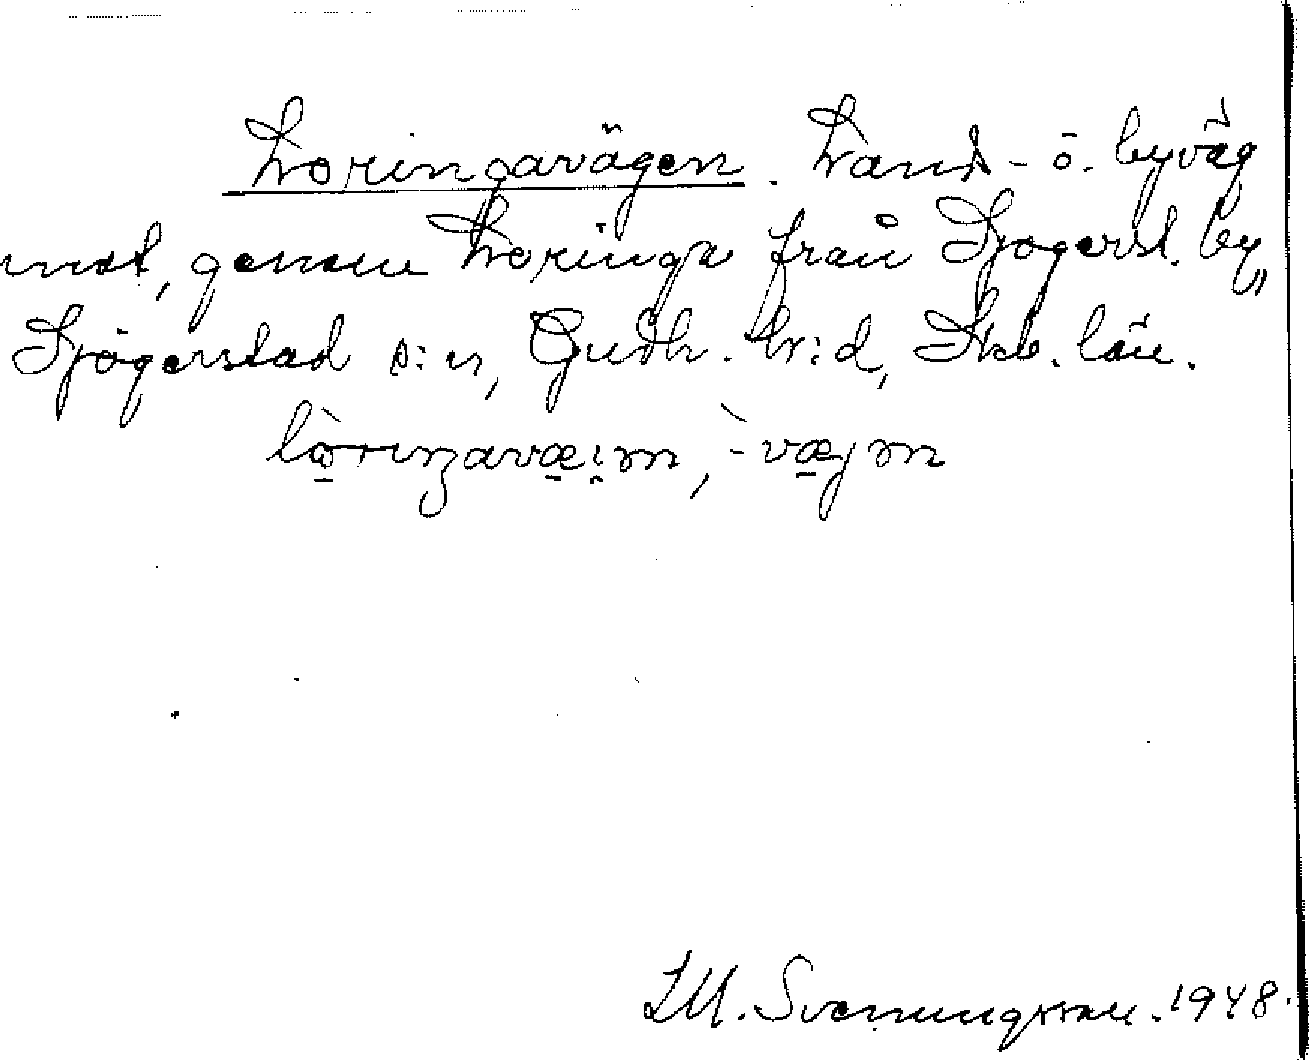 Loringavägen. Land- o. byväg
mot, genom Loringa från Sjogerst. by,
Sjögerstad s:n, Gudh. hr:d, Skb. län.
lòriŋavæin, -vægin
S.M. Svenungsson. 1948.